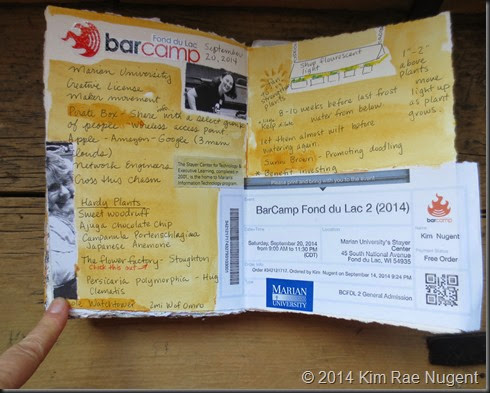 Fond du Lac
barcamp
September
20, 2014
Marian University
Creative License
Maker movement
Pirate Box - Share with a select group
of people - wireless access point
Apple - Amazon - Google (3 main
clouds)
Network Engineers
Cross this chasm
The Stayer Center for Technology &
Executive Learning, completed in
2001, is the home to Marian's
Information Technology program.
Hardy Plants
Sweet woodruff
Ajuga chocolate chip
Campanula Portenschlagiana
Japanese Anemone
The Flower factory - Stoughton
Check this out
Persicaria polymorphia - Hug
Clematis
Watchtower - 2mi W of Omro
Shop fluorescent
light
1"-2"
above
plants
move
light up
as plant
grows.
8-10 weeks before last frost
Keep water from below.
let them almost wilt before
watering again.
Sunni Brown - Promoting doodling
Benefit investing
Please print and bring with you to the event
Event
BarCamp Fond du Lac 2 (2014)
Saturday, September 20, 2014
from 9:00 AM to 11:30 PM
(CDT)
Marian University's Stayer
Center
45 South National Avenue
Fond du Lac, WI 54935
Ordered by Kim Nugent on September 14, 2014 9:24 PM
MARIAN
UNIVERSITY
BCFDL 2 General Admission
barcamp
Name
Kim Nugent
Payment Status
Free Order
© 2014 Kim Rae Nugent